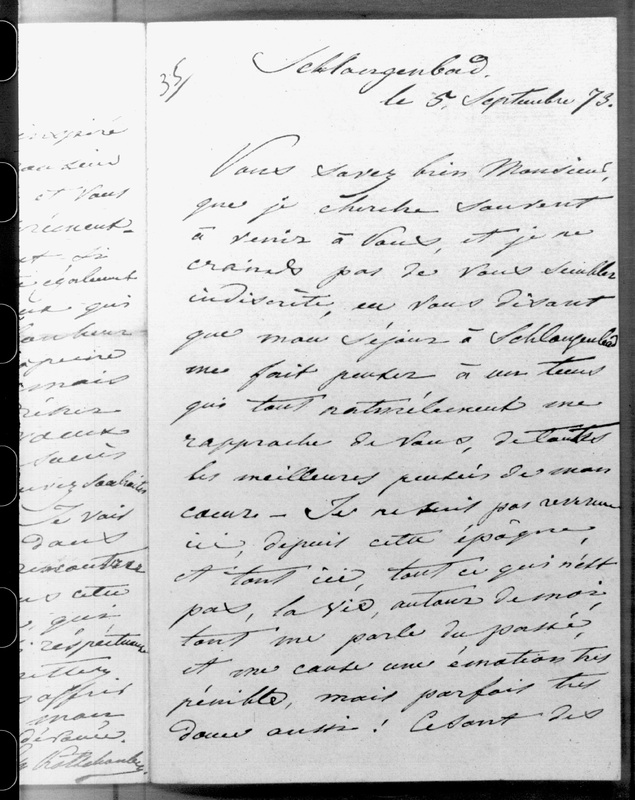 inspiré
et Vous
également
qui
bonheur
à peine
mais
vaux
succès
souhaiter
Je vais
dans
rencontrer
cette
qui,
respectueux
offrir
mon
dévoué.
35/
Schlangenbad.
le 5. Septembre 73.
Vous savez bien Monsieur,
que je cherche souvent
à venir à Vous, et je ne
crains pas de Vous sembler
indiscrète, en Vous disant
que mon séjour à Schlangenbad
me fait penser à un tems
qui tout naturélement me
rapproche de Vous, de toutes
les meilleures pensées de mon
coeur – Je ne suis pas revenue
ici, depuis cette époque,
et tout ici, tout ce qui n'est
pas, la vie, autour de moi,
tout me parle du passé,
et me cause une émotion très
pénible, mais parfois très
douce aussi! Ce sont des